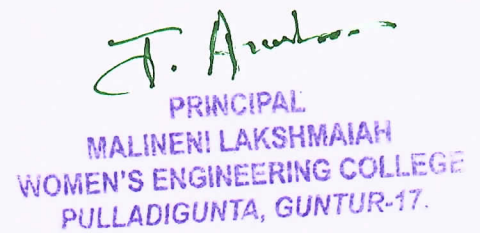 J.
PRINCIPAL
MALINENI LAKSHMAIAH
WOMEN'S ENGINEERING COLLEGE
PULLADIGUNTA, GUNTUR-17.